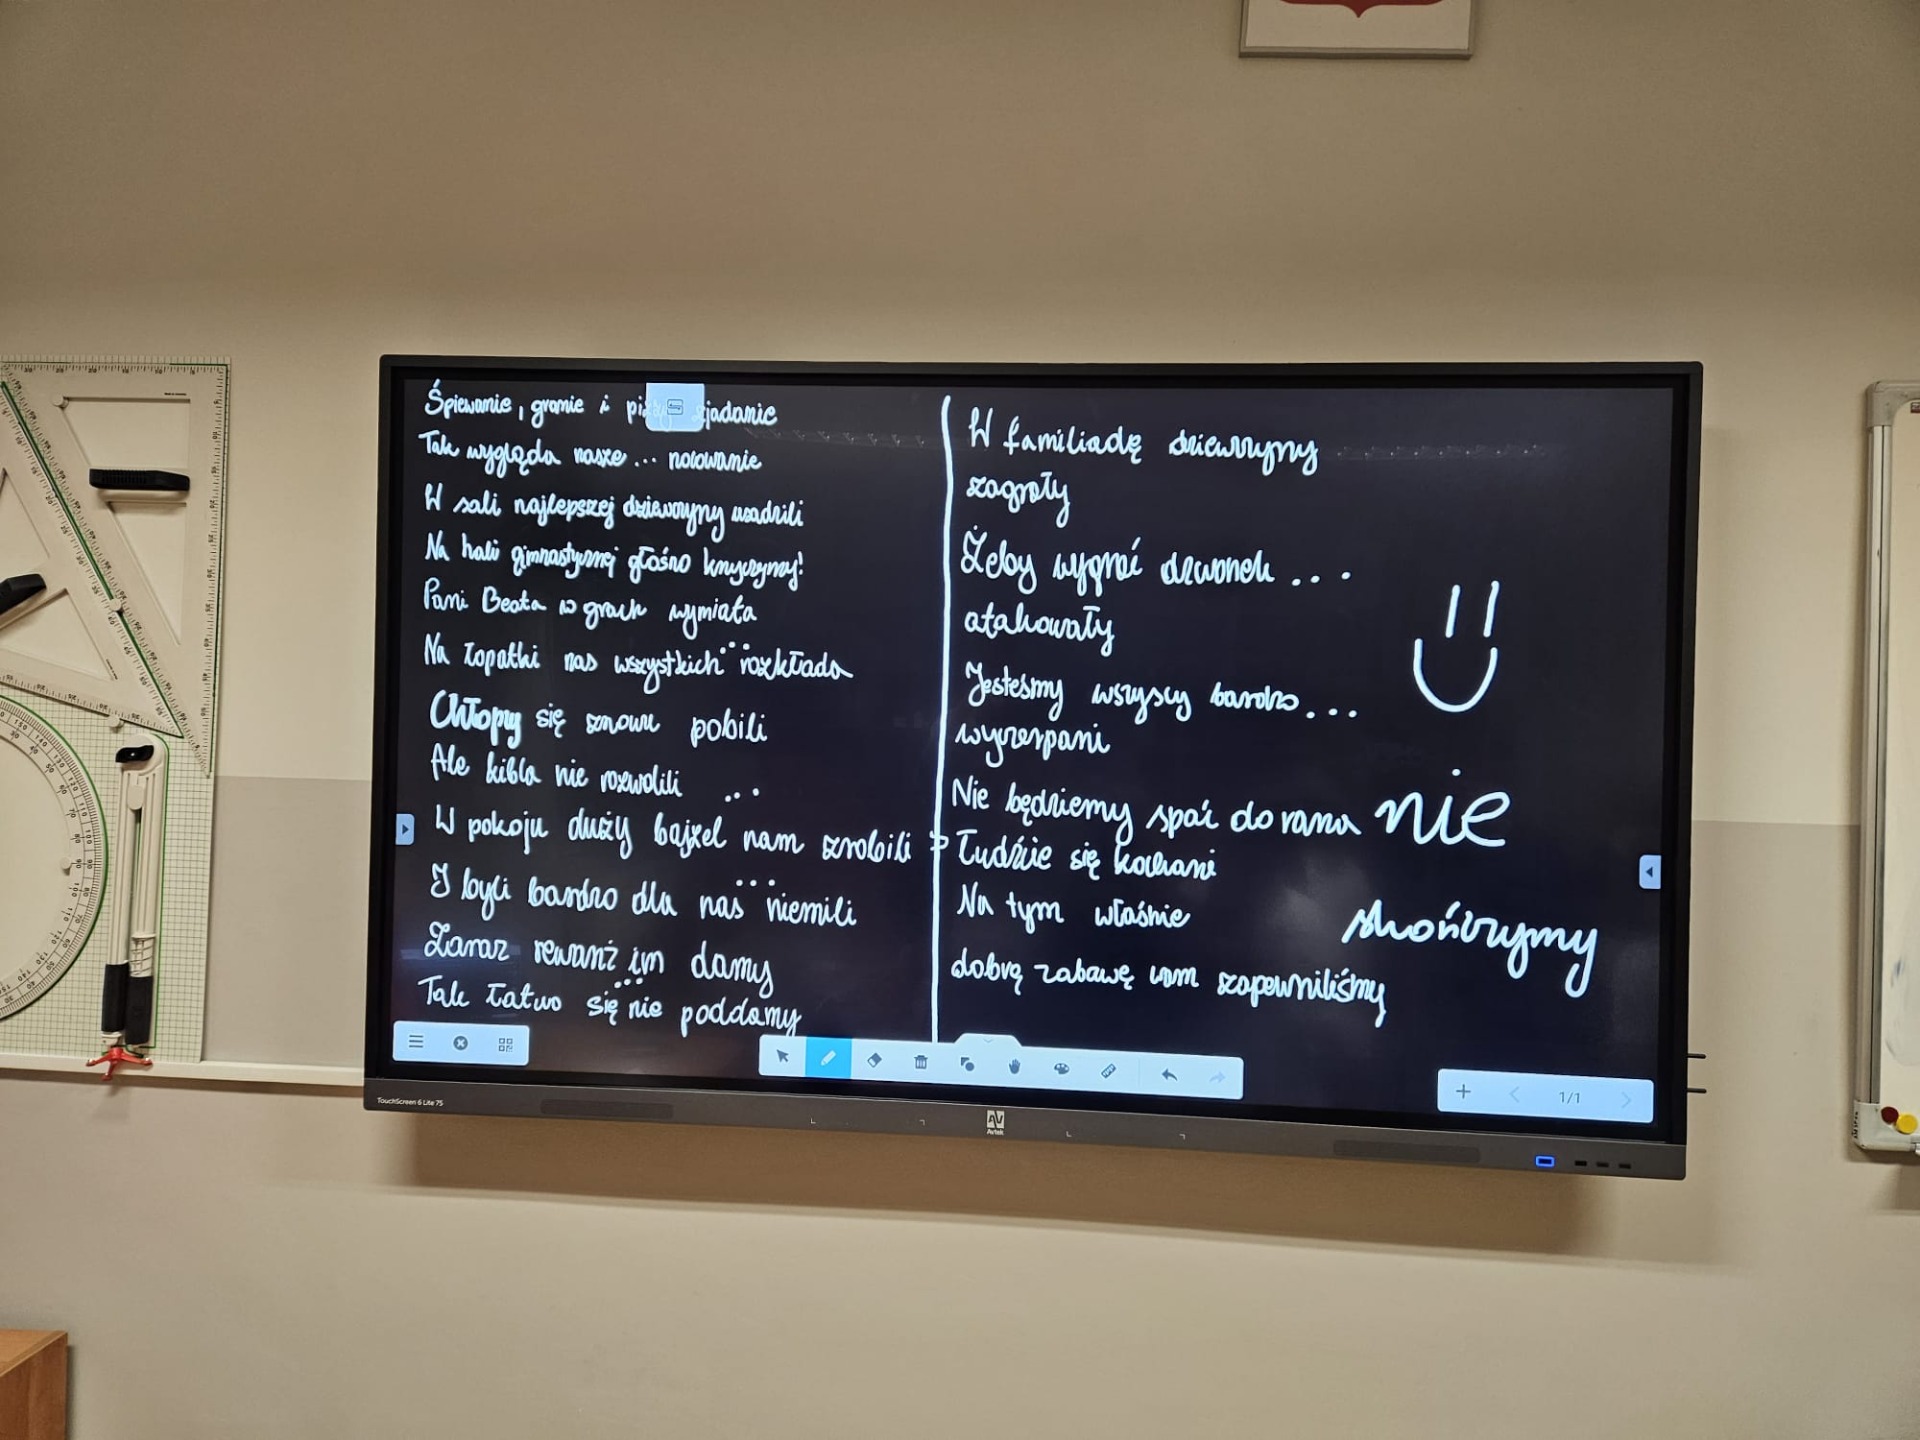 Śpiewanie, granie i pizzy zjadanie
Tak wygląda nasze ... nocowanie
W sali najlepszej dziewczyny rządzili
Na hali gimnastycznej głośno krzyczymy!
Pani Beata w grach wymiata
Na łopatki nas wszystkich ... rozkłada
Chłopy się znowu pobili
Ale kibla nie rozwalili ...
W pokoju duży bajzel nam zrobili
I byli bardzo dla nas ... niemili
Zaraz rewanż im damy
Tak łatwo się ... nie poddamy
W familiadę dziewczyny
zagrały
Żeby wygrać dzwonek ...
atakowały
Jesteśmy wszyscy bardzo ...
wyczerpani
Nie będziemy spać do rana nie
Łudźcie się kochani
Na tym właśnie skończymy
dobrą zabawę wam zapewniliśmy
1/1
TouchScreen 6 Lite 75
Avtek